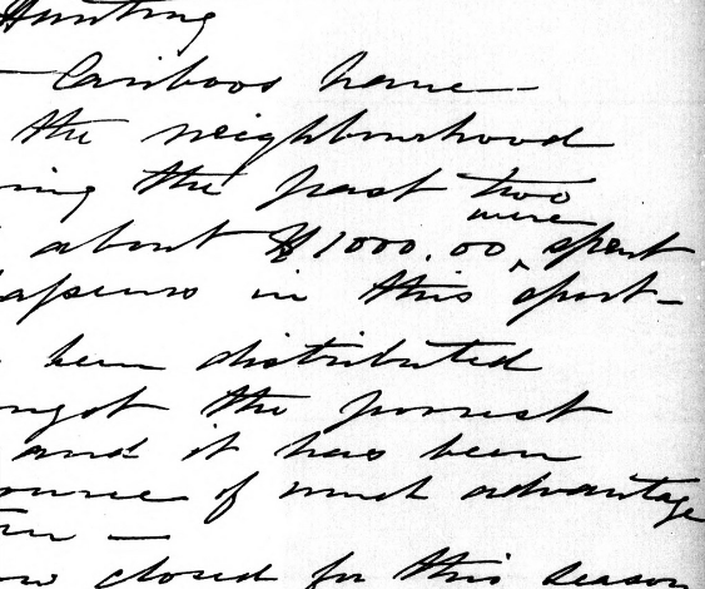 Hunting
Cariboos have
the neighbourhood
ing the past two
were
about $1000.00 ‸ spent
in this sport-
been distributed
ngst the poorest
and it has been
ource of much advantage
—
ow closed for this season